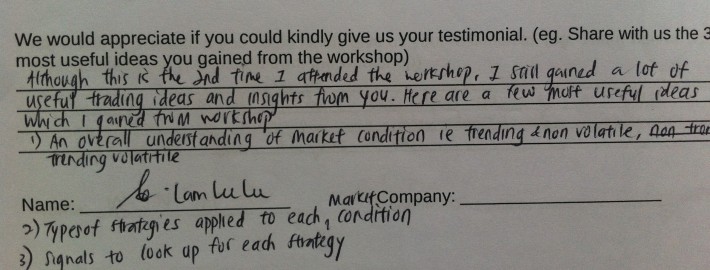 We would appreciate if you could kindly give us your testimonial. (eg. Share with us the 3
most useful ideas you gained from the workshop)
Although this is the 2nd time I attended the workshop, I still gained a lot of
useful trading ideas and insights from you. Here are a few most useful ideas
which I gained from workshop
1) An overall understanding of market condition ie trending & non volatile, non
trending volatitile
Name: Lam Lu Lu Company:
2) Types of strategies applied to each market condition
3) Signals to look up for each strategy